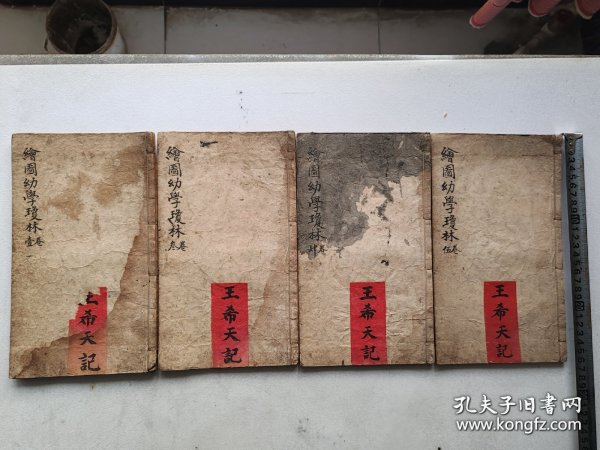 繪圖幼學瓊林 卷壹
王希天記
繪圖幼學瓊林 卷叁
王希天記
繪圖幼學瓊林 卷肆
王希天記
繪圖幼學瓊林 卷伍
王希天記
孔夫子旧书网
www.kongfz.com